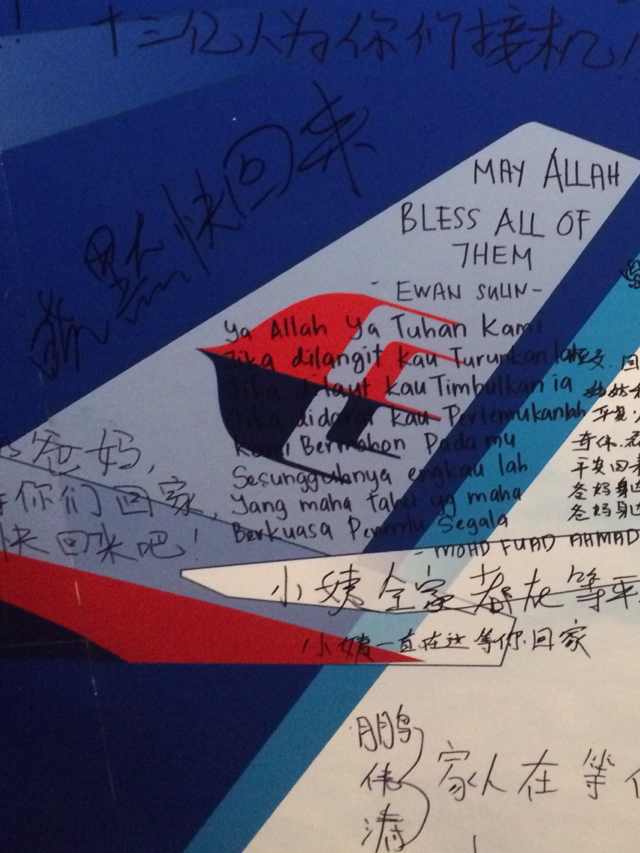 十三亿人为你们接机!
快回来
MAY ALLAH
BLESS ALL OF
THEM
- EWAN SUUN-
Ya Allah Ya Tuhan Kami
Jika dilangit kau Turunkan la
Jika dilaut kau Timbulkan ia
Jika didarat kau Pertemukanlah
Kami Bermohon Padamu
Sesungguhnya engkau lah
Yang maha tahu yg maha
Berkuasa Penentu Segala
- MOHD FUAD AHMAD
回
平安
平安回来
爸妈身边
爸妈身边
爸妈,
你们回家,
快回来吧!
小姨全家都在等平
小嫂一直在这等你回家
鹏
伟
涛
家人在等